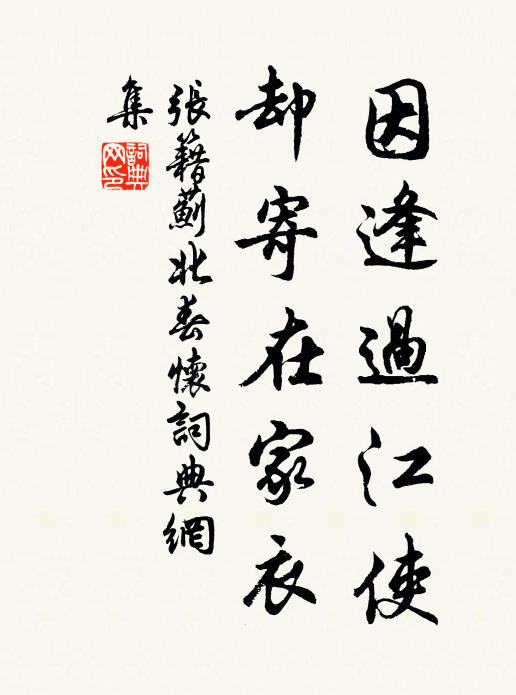 因逢過江使
却寄在家衣
張籍薊北春懷詞典網
集
詞典
网印